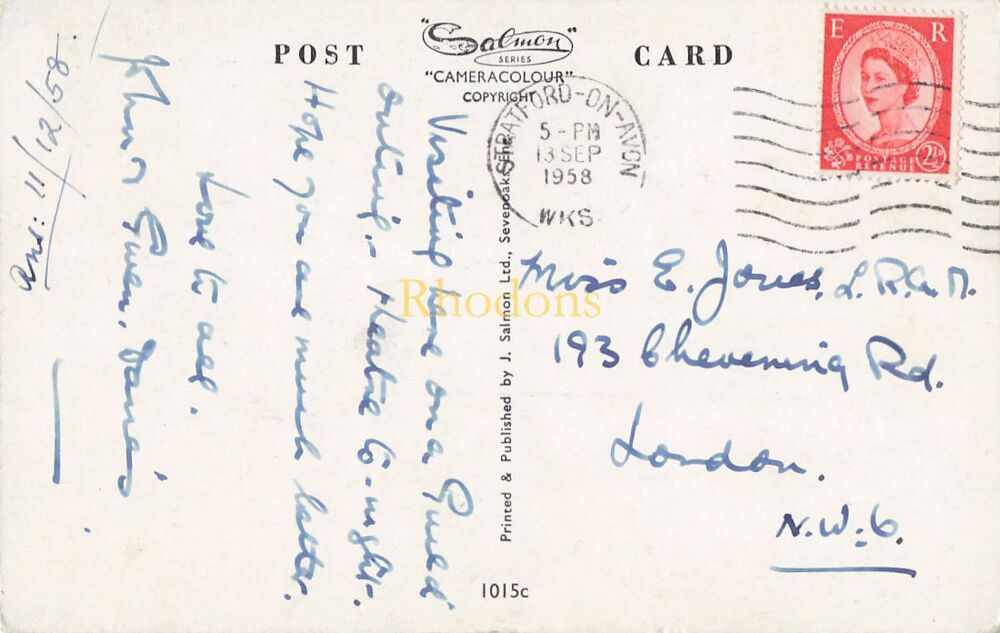 POST CARD
"Salmon"
SERIES
"CAMERACOLOUR"
COPYRIGHT
E R
POSTAGE
REVENUE
2½D
STRATFORD-ON-AVON
5-PM
13 SEP
1958
WKS
Visiting here on a Guild
outing, theatre to-night.
Hope you are much better.
Love to all.
Gwen.
11/12/58.
Miss E. Jones, L.R.A.M.
193 Chevening Rd.
London.
N.W.6.
Printed & Published by J. Salmon Ltd., Sevenoaks, Eng.
1015c
Rhodons